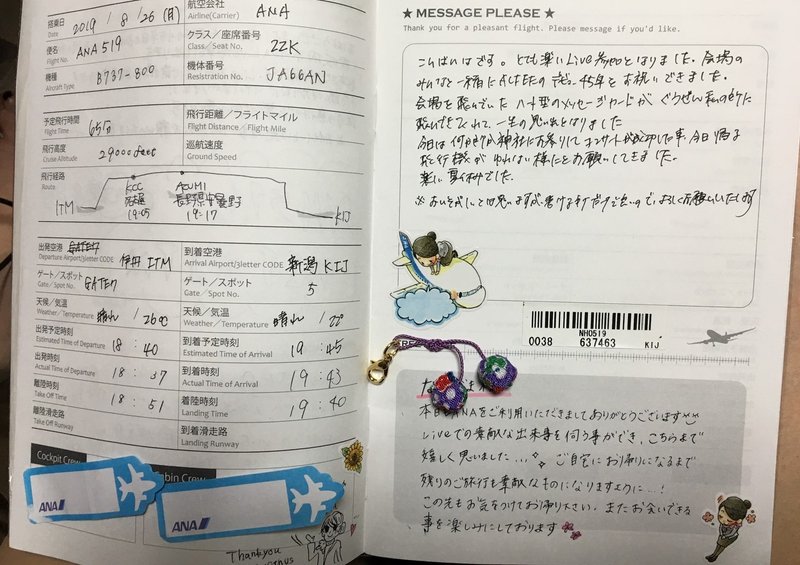 搭乗日 Date 2019 / 8 / 26 (月)
航空会社 Airline(Carrier) ANA
便名 Flight No. ANA 519
クラス／座席番号 Class / Seat No. 22K
機種 Aircraft Type B737-800
機体番号 Resistration No. JA66AN
予定飛行時間 Flight Time 65分
飛行距離／フライトマイル Flight Distance／Flight Mile
飛行高度 Cruise Altitude 29000 feet
巡航速度 Ground Speed
飛行経路 Route
ITM KCC 名古屋 19:05 AZUMI 長野県安曇野 19:17 KIJ
出発空港 Departure Airport/3letter CODE 伊丹 ITM
到着空港 Arrival Airport/3letter CODE 新潟 KIJ
ゲート／スポット Gate / Spot No. GATE7
ゲート／スポット Gate / Spot No. 5
天候／気温 Weather／Temperature 晴れ / 26℃
天候／気温 Weather／Temperature 晴れ / 22℃
出発予定時刻 Estimated Time of Departure 18 : 40
到着予定時刻 Estimated Time of Arrival 19 : 45
出発時刻 Actual Time of Departure 18 : 37
到着時刻 Actual Time of Arrival 19 : 43
離陸時刻 Take Off Time 18 : 51
着陸時刻 Landing Time 19 : 40
離陸滑走路 Take Off Runway
到着滑走路 Landing Runway
Cockpit Crew
Cabin Crew
ANA
ANA
Thankyou
★ MESSAGE PLEASE ★
Thank you for a pleasant flight. Please message if you'd like.
こんばんはです。とても楽しいLive参加となりました。会場の
みんなと一緒にALFEEの 45年をお祝いできました。
会場を 一生の思い出となりました
今日は 神社にお参りして コンサートが成功した事、今日帰る
飛行機が ゆれない様にとお願いしてきました。
楽しい夏休みでした。
※おいそがしいと思いますが、書けるだけで良いので、よろしくお願いいたします
NH0519
0038 637463 KIJ
本日もANAをご利用いただきましてありがとうございます
Liveでの素敵な出来事を伺う事ができ、こちらまで
嬉しく思いました… ご自宅にお帰りになるまで
残りのご旅行も素敵なものになりますように…！
この先もお気をつけてお帰り下さい。またお会いできる
事を楽しみにしております